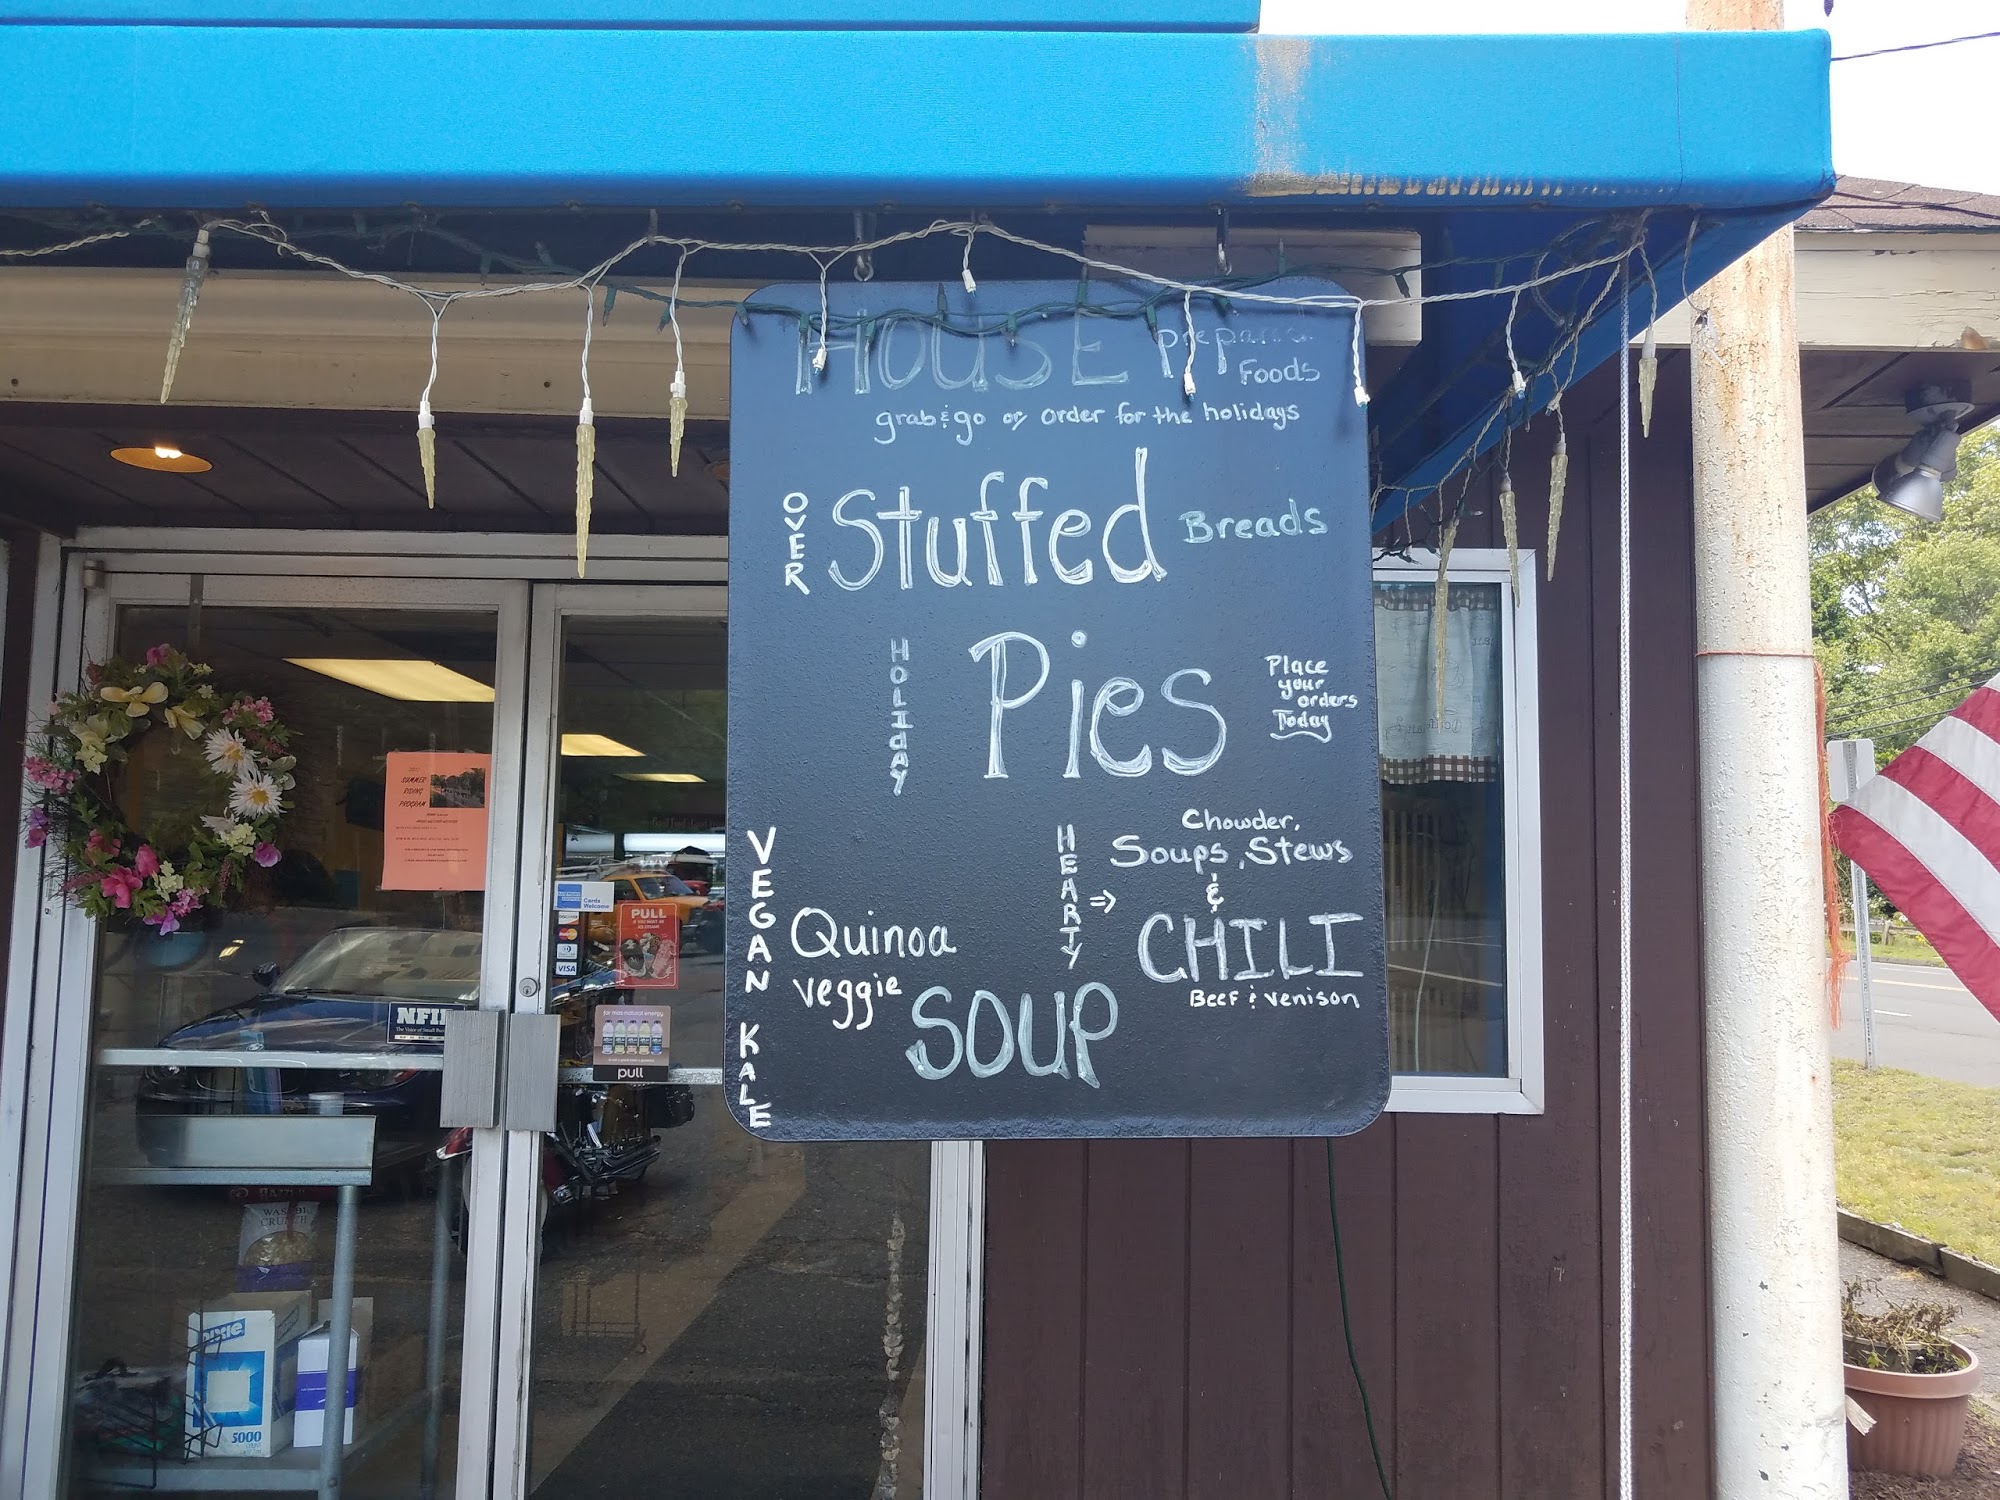 HOUSE prepared
Foods
grab & go or order for the holidays
OVER Stuffed Breads
HOLIDAY Pies
Place
your
orders
Today
HEARTY ⇒
Chowder,
Soups, Stews
&
CHILI
Beef & venison
VEGAN KALE
Quinoa
veggie SOUP
SUMMER
RIDING
PROGRAM
Cards
Welcome
DISCOVER
VISA
PULL
NFIB
pull
WASABI
CRUNCH
DIXIE
5000